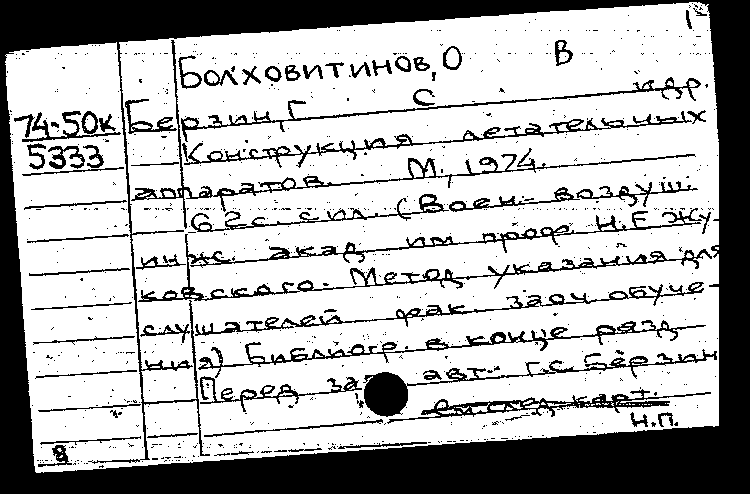 1
Болховитинов, О В
74-50к Берзин, Г С и др.
5333 Конструкция летательных
аппаратов. М., 1974.
62с. с ил. (Воен.- воздуш.
инж. акад им проф. Н.Е Жу-
ковского. Метод. указания для
слушателей фак. заоч обуче-
ния) Библиогр. в конце разд
Перед авт.: Г.С. Берзин
см след карт.
8 Н.П.